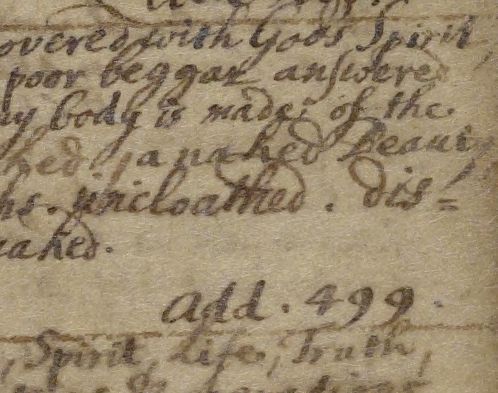 overed with Gods Spirit,
poor beggar answered
my body is made of the
ked, a naked Beauty
hs. uncloathed. dis=
naked.
add. 499.
, Spirit, Life, Truth,